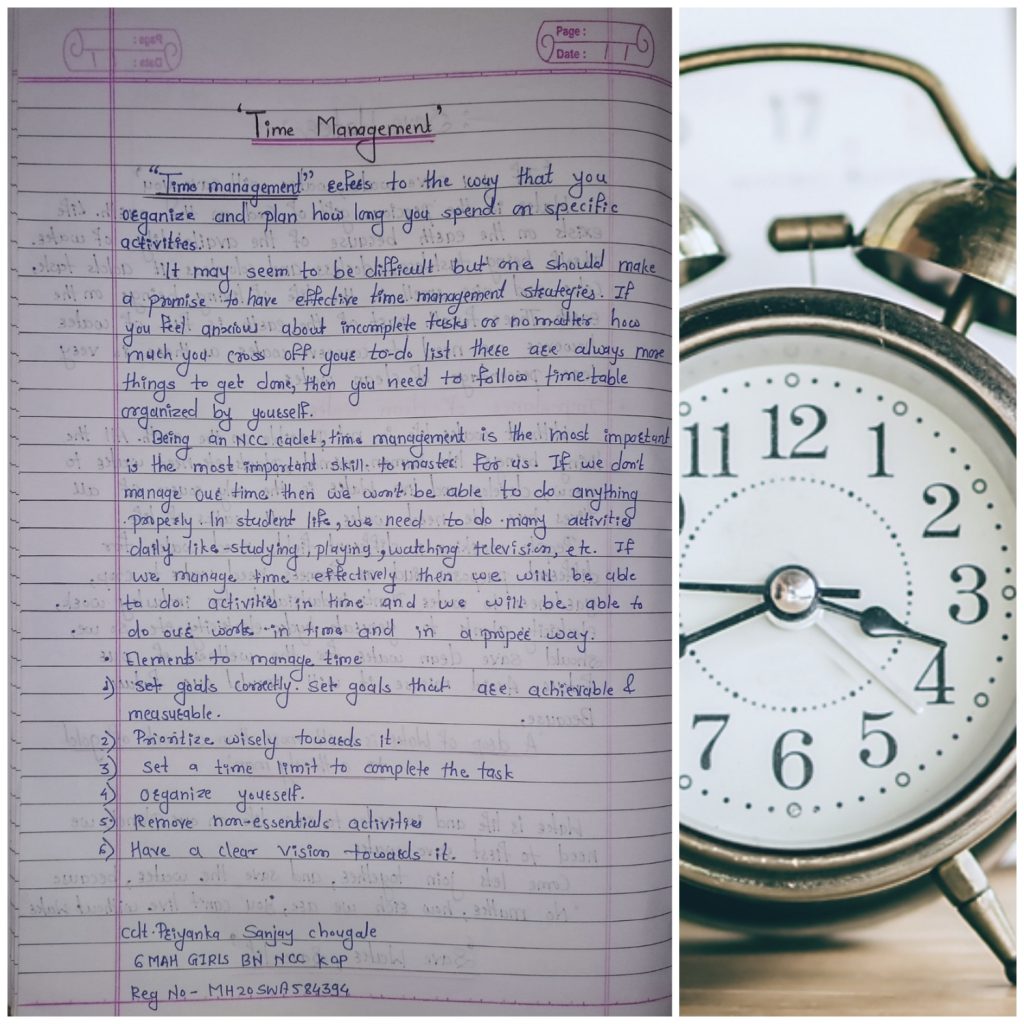 Page :
Date :
'Time Management'
"Time management" refers to the way that you
organize and plan how long you spend on specific
activities.
It may seem to be difficult but one should make
a promise to have effective time management strategies. If
you feel anxious about incomplete tasks or no matter how
much you cross off your to-do list there are always more
things to get done, then you need to follow time-table
organized by yourself.
Being an NCC cadet, time management is the most important
is the most important skill to master for us. If we don't
manage our time then we won't be able to do anything
properly. In student life, we need to do many activities
daily like studying, playing, watching television, etc. If
we manage time effectively then we will be able
to do activities in time and we will be able to
do our work in time and in a proper way.
• Elements to manage time
1) set goals correctly. set goals that are achievable &
measurable.
2) Prioritize wisely towards it.
3) set a time limit to complete the task
4) organize yourself.
5) Remove non-essentials activities
6) Have a clear vision towards it.
Cdt. Priyanka Sanjay chougale
6 MAH GIRLS BN NCC KOP
Reg No - MH20SWA584394
17
11 12 1
2
3
4
5
6
7